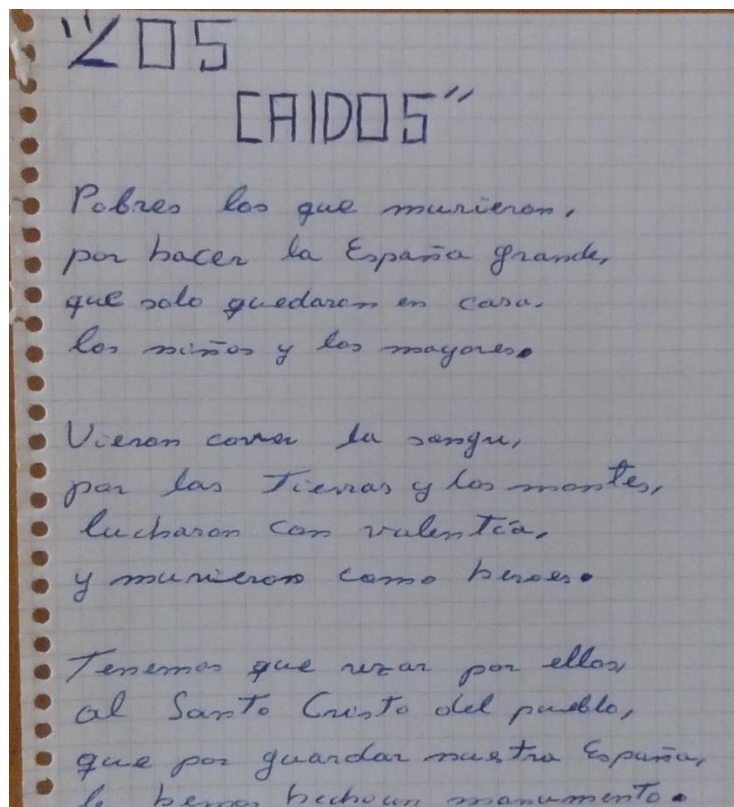 "LOS
CAIDOS"
Pobres los que murieron,
por hacer la España grande,
que solo quedaron en casa.
los niños y los mayores.
Vieron correr la sangre,
por las Tierras y los montes,
lucharon con valentía,
y murieron como heroes.
Tenemos que rezar por ellos,
al Santo Cristo del pueblo,
que por guardar nuestra España,
le hemos hecho un monumento.